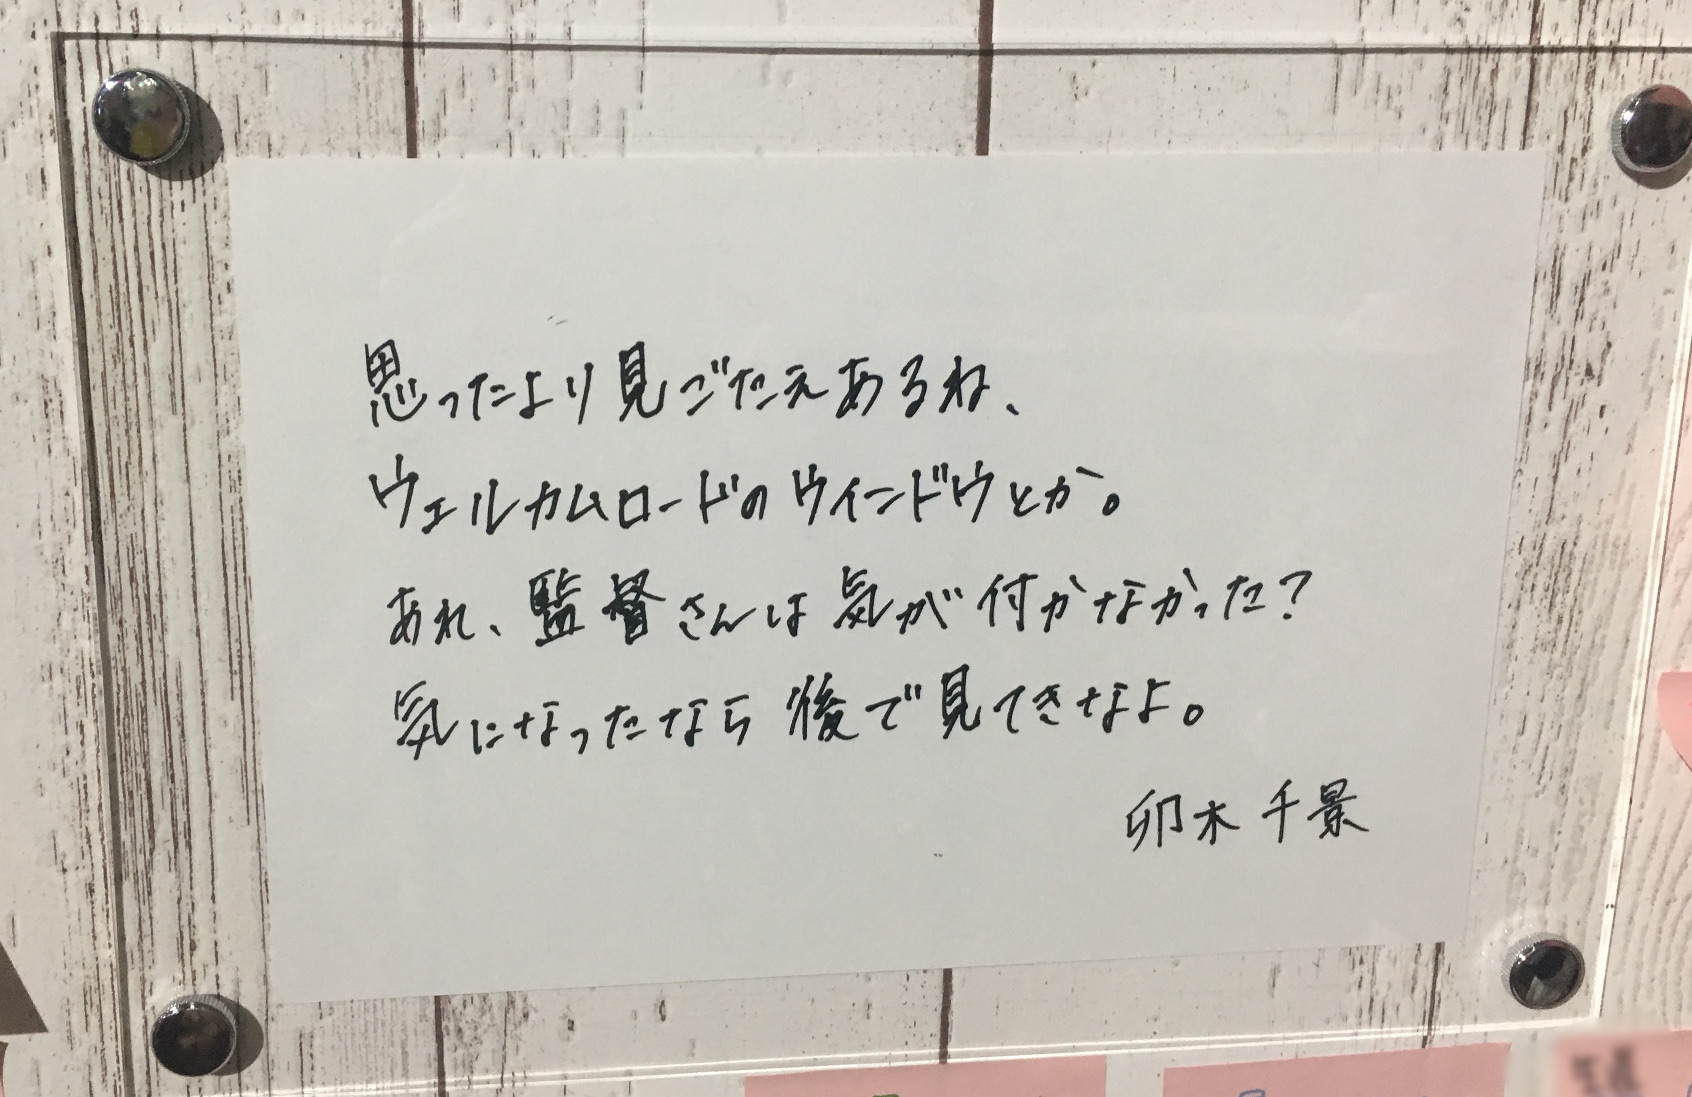 思ったより見ごたえあるね、
ウェルカムロードのウィンドウとか。
あれ、監督さんは気が付かなかった?
気になったなら後で見てきなよ。
卯木 千景